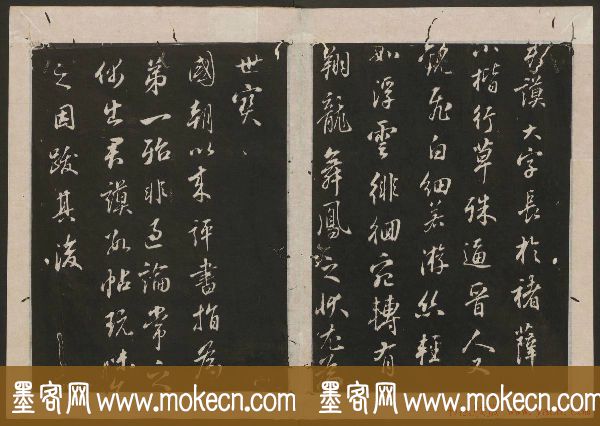 君謨大字長於褚薛
小楷行草殊逼晉人又
能飛白細若游絲輕
如浮雲徘徊宛轉有
翔龍舞鳳之狀尤為
世寶
國朝以來評書指為
第一殆非過論常
出君謨數帖玩味
之因跋其後
墨客网 www.mokecn.com 墨客网 www.mokecn.com